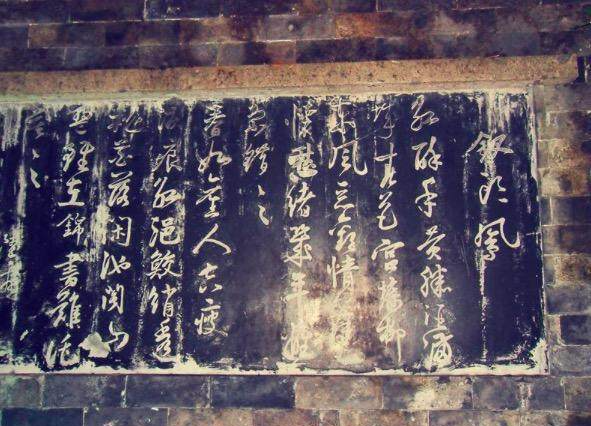 釵頭鳳
紅酥手黃縢酒滿
城春色宮牆柳
東風惡歡情薄一
懷愁緒幾年離
索錯〻〻
春如舊人空瘦
淚痕紅浥鮫綃透
桃花落閒池閣山
盟雖在錦書難託
莫〻〻